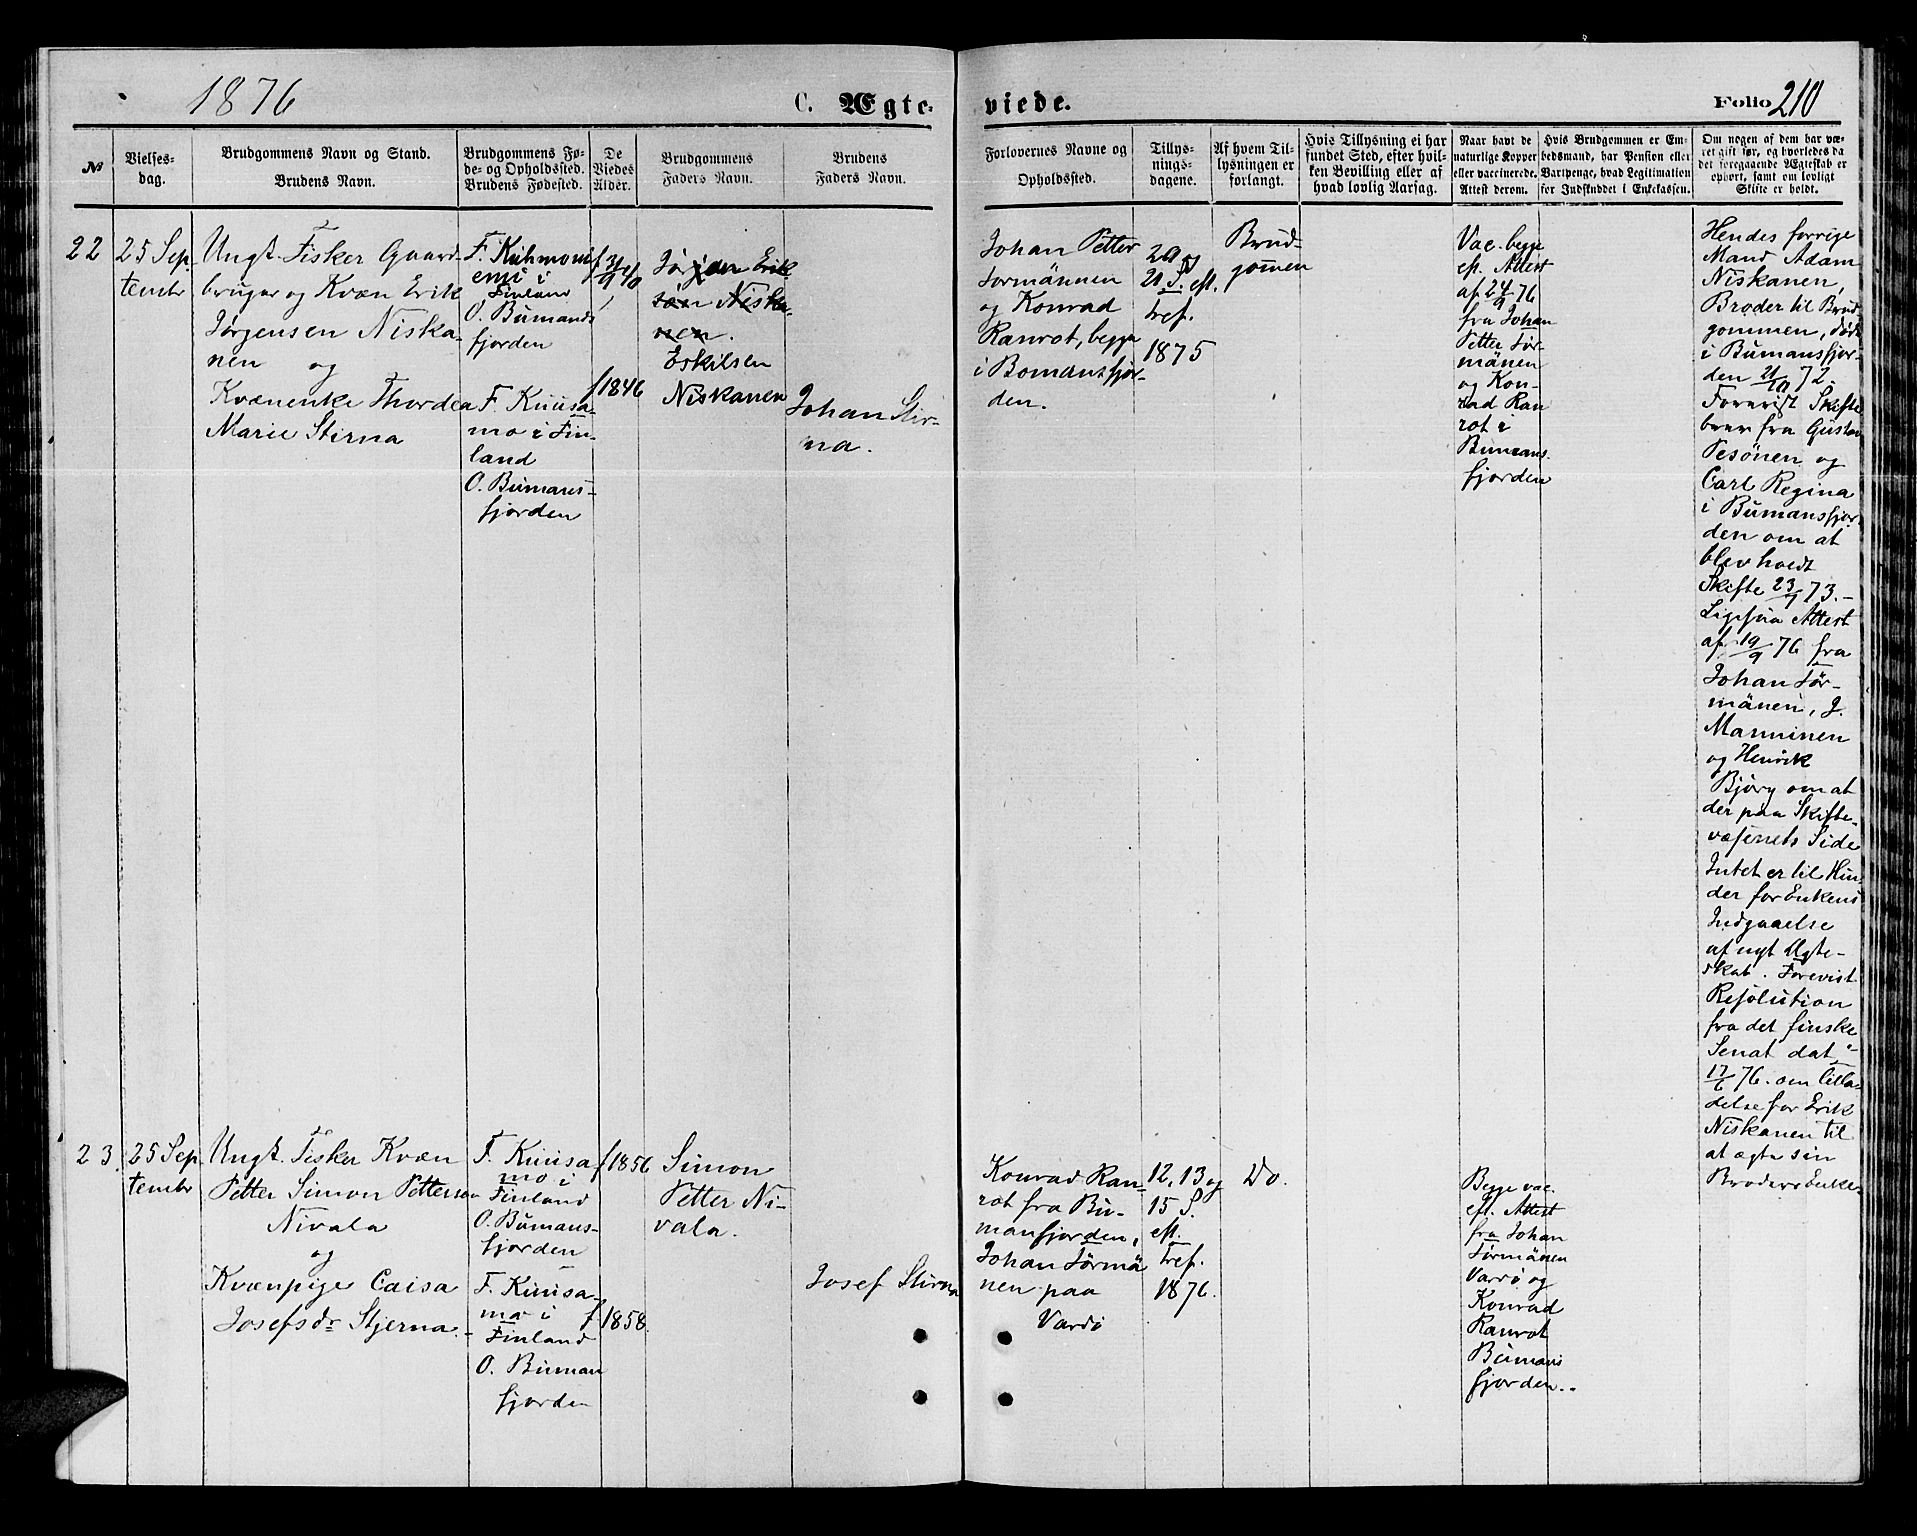 1876
C. Ægte-
viede.
Folio 210
No
Vielses-
dag.
Brudgommens Navn og Stand.
Brudens Navn.
Brudgommens Fø-
de- og Opholdssted.
Brudens Fødested.
De
Viedes
Alder.
Brudgommens
Faders Navn.
Brudens
Faders Navn.
Forlovernes Navne og
Opholdssted.
Tillys-
nings-
dagene.
Af hvem Til-
lysningen er
forlangt.
Hvis Tillysning ei har
fundet Sted, efter hvil-
ken Bevilling eller af
hvad lovlig Aarsag.
Naar havt de
naturlige Kopper
eller vaccinerede.
Attest derom.
Hvis Brudgommen er Em-
bedsmand, har Pension eller
Vartpenge, hvad Legitimation
for Indskuddet i Enkekassen.
Om nogen af dem har væ-
ret gift før, og hvorledes da
det foregaaende Ægteskab er
ophørt, samt om lovligt
Skifte er holdt.
22
25 Sep
tembr
Ungk. Fisker Gaard-
bruger og Kvæn Erik
Jørgensen Niska-
nen og
Kvænenke Thordea
Marie Stirna
F. Kuhmoni
emi i
Finland
O. Bumands
fjorden
F. Kuusa-
mo i Fin-
land
O. Bumans-
fjorden
f 31/9 40
f 1846
Jørgen Erik
sen Niska-
nen.
Eskilsen
Niskanen
Johan Stir-
na.
Johan Petter
Tormännen
og Konrad
Ranrot, begge
i Bomansfjor-
den.
20 og
21 S. eft.
Tref.
1875
Brud-
gommen
Vac. begge
eft. Attest
af 24/9 76
fra Johan
Petter Tør-
mänen
og Kon-
rad Ran
rot i
Bumans-
fjorden
Hendes forrige
Mand Adam
Niskanen,
Broder til Brud-
gommen, døde
i Bumansfjor-
den 21/10 72.
Forevist Skifte
brev fra Gustav
Pesönen og
Carl Regina
i Bumansfjor-
den om at
blev holdt
Skifte 23/7 73.-
Ligesaa Attest
af 19/9 76 fra
Johan Tör-
mänen, J.
Manninen
og Henrik
Bjørg om at
der paa Skifte-
væsenets Side
Intet er til Hin-
der for Enkens
Indgaaelse
af nyt Ægte-
skab. Forevist
Resolution
fra det finske
Senat dat
17/6 76. om Tilla-
delse for Erik
Niskanen til
at ægte sin
Broders Enke.
23.
25 Sep.
tembr
Ungk. Fisker Kvæn
Petter Simon Petterson
Nivala
og
Kvænpige Caisa
Josefsdr Stjerna.
F. Kuusa
mo i
Finland
O. Bumans-
fjorden
F. Kuusa-
mo i
Finland
O. Buman
fjorden
f 1856
f 1858.
Simon
Petter Ni-
vala.
Josef Stirna
Konrad Ran-
rot fra Bu-
manfjorden,
Johan Törmä
nen paa
Vardö
12, 13 og
15 S.
eft.
Tref.
1876.
Do.
Begge vac.
eft. Attest
fra Johan
Törmänen
Vardö og
Konrad
Ranrot
Bumans
fjorden.